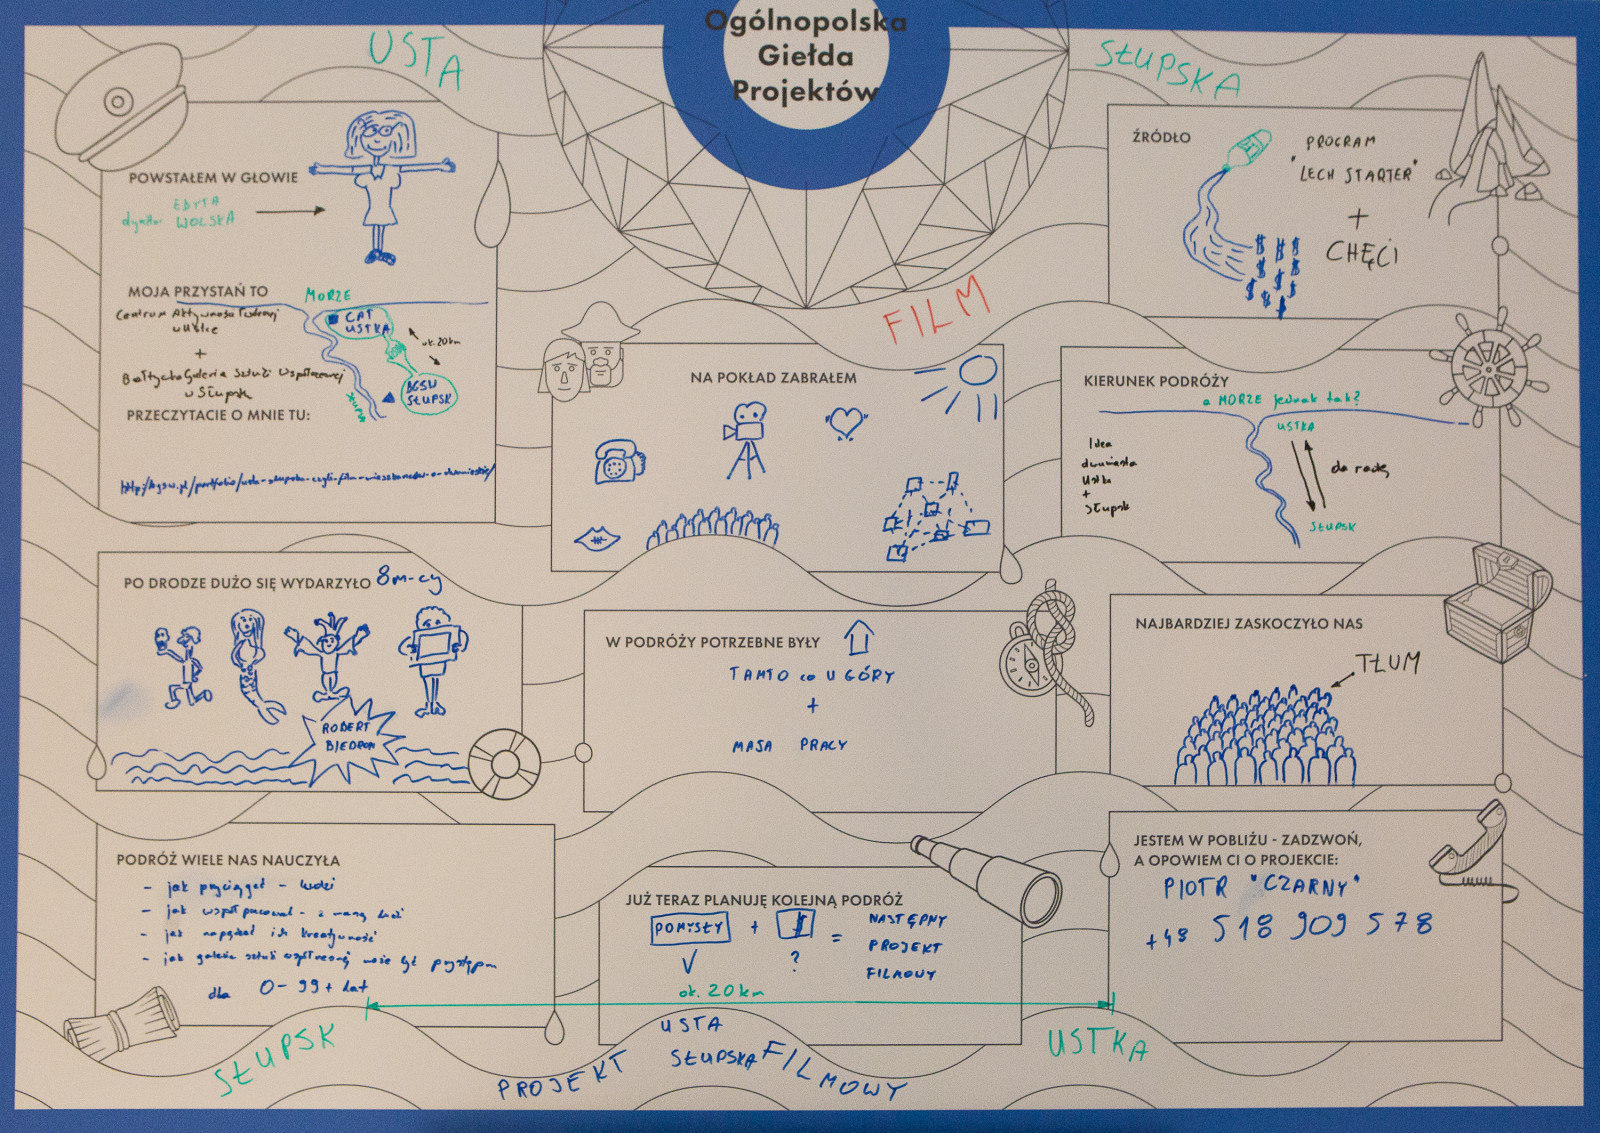 Ogólnopolska
Giełda
Projektów
USTA
SŁUPSKA
FILM
POWSTAŁEM W GŁOWIE
EDYTA
WOLSKA
MOJA PRZYSTAŃ TO
MORZE
Centrum Aktywności Twórczej
w Ustce
+
Bałtycka Galeria Sztuki Współczesnej
w Słupsk
CAT
USTKA
ok. 20 km
BGSW
SŁUPSK
SŁUPIA
PRZECZYTACIE O MNIE TU:
ŹRÓDŁO
PROGRAM
"LECH STARTER"
+
CHĘCI
$ $ $
$ $ $
$ $ $
$
NA POKŁAD ZABRAŁEM
KIERUNEK PODRÓŻY
a MORZE jednak tak?
USTKA
Idea
dwumiasta
Ustka
+
Słupsk
do radę
SŁUPSK
PO DRODZE DUŻO SIĘ WYDARZYŁO 8 m-cy
ROBERT
BIEDROŃ
W PODRÓŻY POTRZEBNE BYŁY
TAMTO co U GÓRY
+
MASA PRACY
NAJBARDZIEJ ZASKOCZYŁO NAS
TŁUM
PODRÓŻ WIELE NAS NAUCZYŁA
- jak przyciągać - ludzi
- jak współpracować - z masą ludzi
- jak napędzać ich kreatywność
- jak galeria sztuki współczesnej może być przystępna
dla 0-99+ lat
JUŻ TERAZ PLANUJĘ KOLEJNĄ PODRÓŻ
POMYSŁY + $ = NASTĘPNY
PROJEKT
FILMOWY
?
JESTEM W POBLIŻU - ZADZWOŃ,
A OPOWIEM CI O PROJEKCIE:
PIOTR "CZARNY"
+48 518 909 578
ok. 20 km
SŁUPSK
USTKA
USTA
SŁUPSKA
PROJEKT FILMOWY